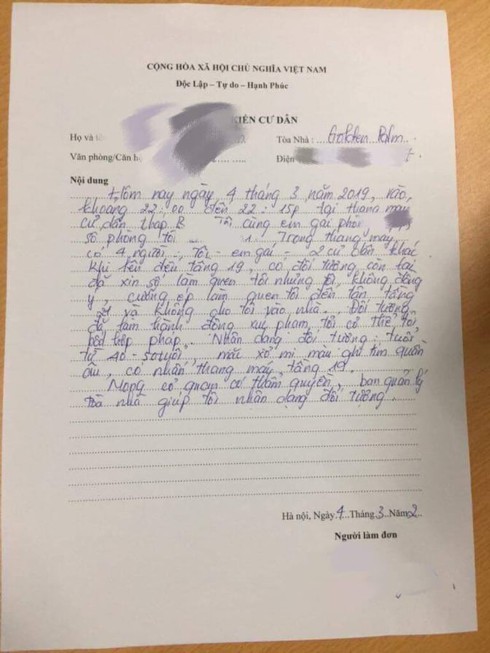 CỘNG HÒA XÃ HỘI CHỦ NGHĨA VIỆT NAM
Độc Lập – Tự do – Hạnh Phúc
KIẾN CƯ DÂN
Họ và tên Tòa Nhà : Golden Palm
Văn phòng/Căn hộ Điện
Nội dung
Hôm nay ngày 4 tháng 3 năm 2019, vào
khoảng 22: 00 đến 22: 15p tại thang máy
cư dân tháp B Tôi cùng em gái
số phòng tôi Trong thang máy
có 4 người - Tôi - em gái - 2 cư dân khác
Khi lên đến tầng 19, có đối tượng còn lại
đã xin số làm quen tôi nhưng không đồng
ý, cưỡng ép làm quen tôi đến tận tầng
và không cho tôi vào nhà. Đối tượng
đã làm hành động xúc phạm tôi cơ thể, tôi
bất hợp pháp. Nhân dạng đối tượng: tuổi
từ 40-50 tuổi, mặc sơ mi màu ghi tím quần
âu, có nhấn thang máy tầng 19.
Mong cơ quan có thẩm quyền, ban quản lý
tòa nhà giúp tôi nhân dạng đối tượng.
Hà nội, Ngày 4 Tháng 3 Năm 2
Người làm đơn